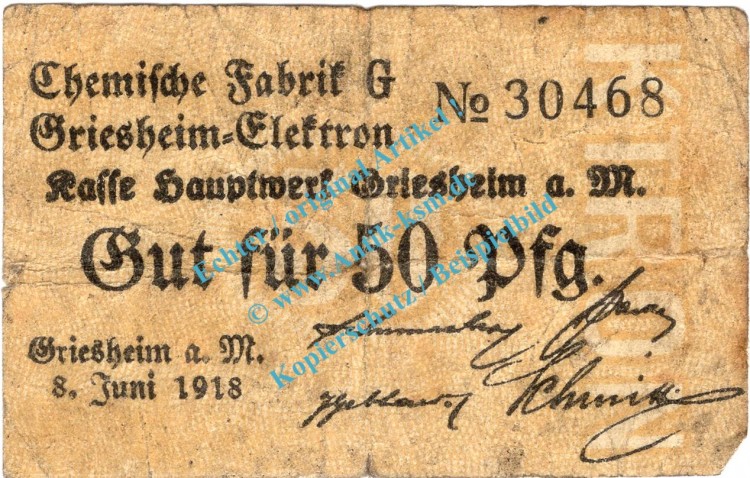 Chemische Fabrik G
№ 30468
Griesheim-Elektron
Kasse Hauptwerk Griesheim a. M.
Gut für 50 Pfg.
Griesheim a. M.
8. Juni 1918
Schmitt
Echter / original Artikel !
© www.Antik-ksm.de
Kopierschutz / Beispielbild